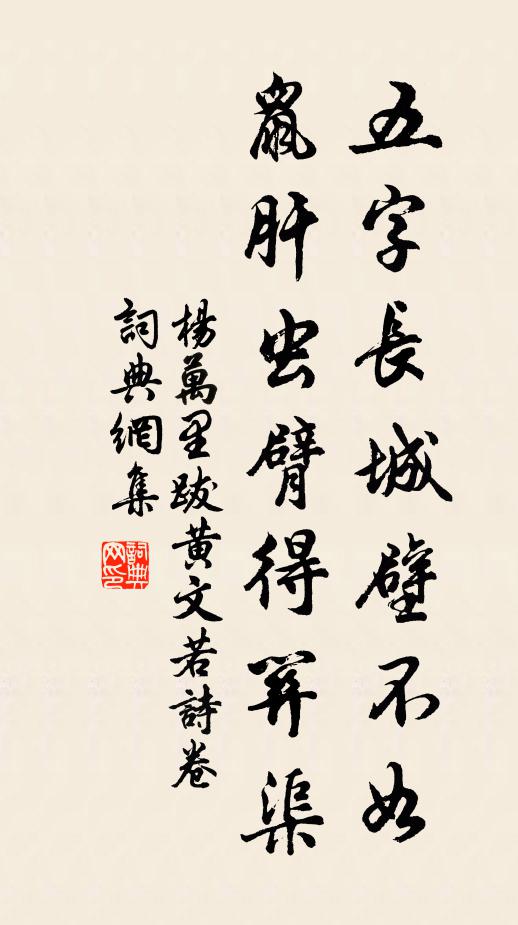 五字長城壁不如
鼠肝虫臂得羿渠
楊萬里跋黄文若詩卷
詞典網集
詞典網印